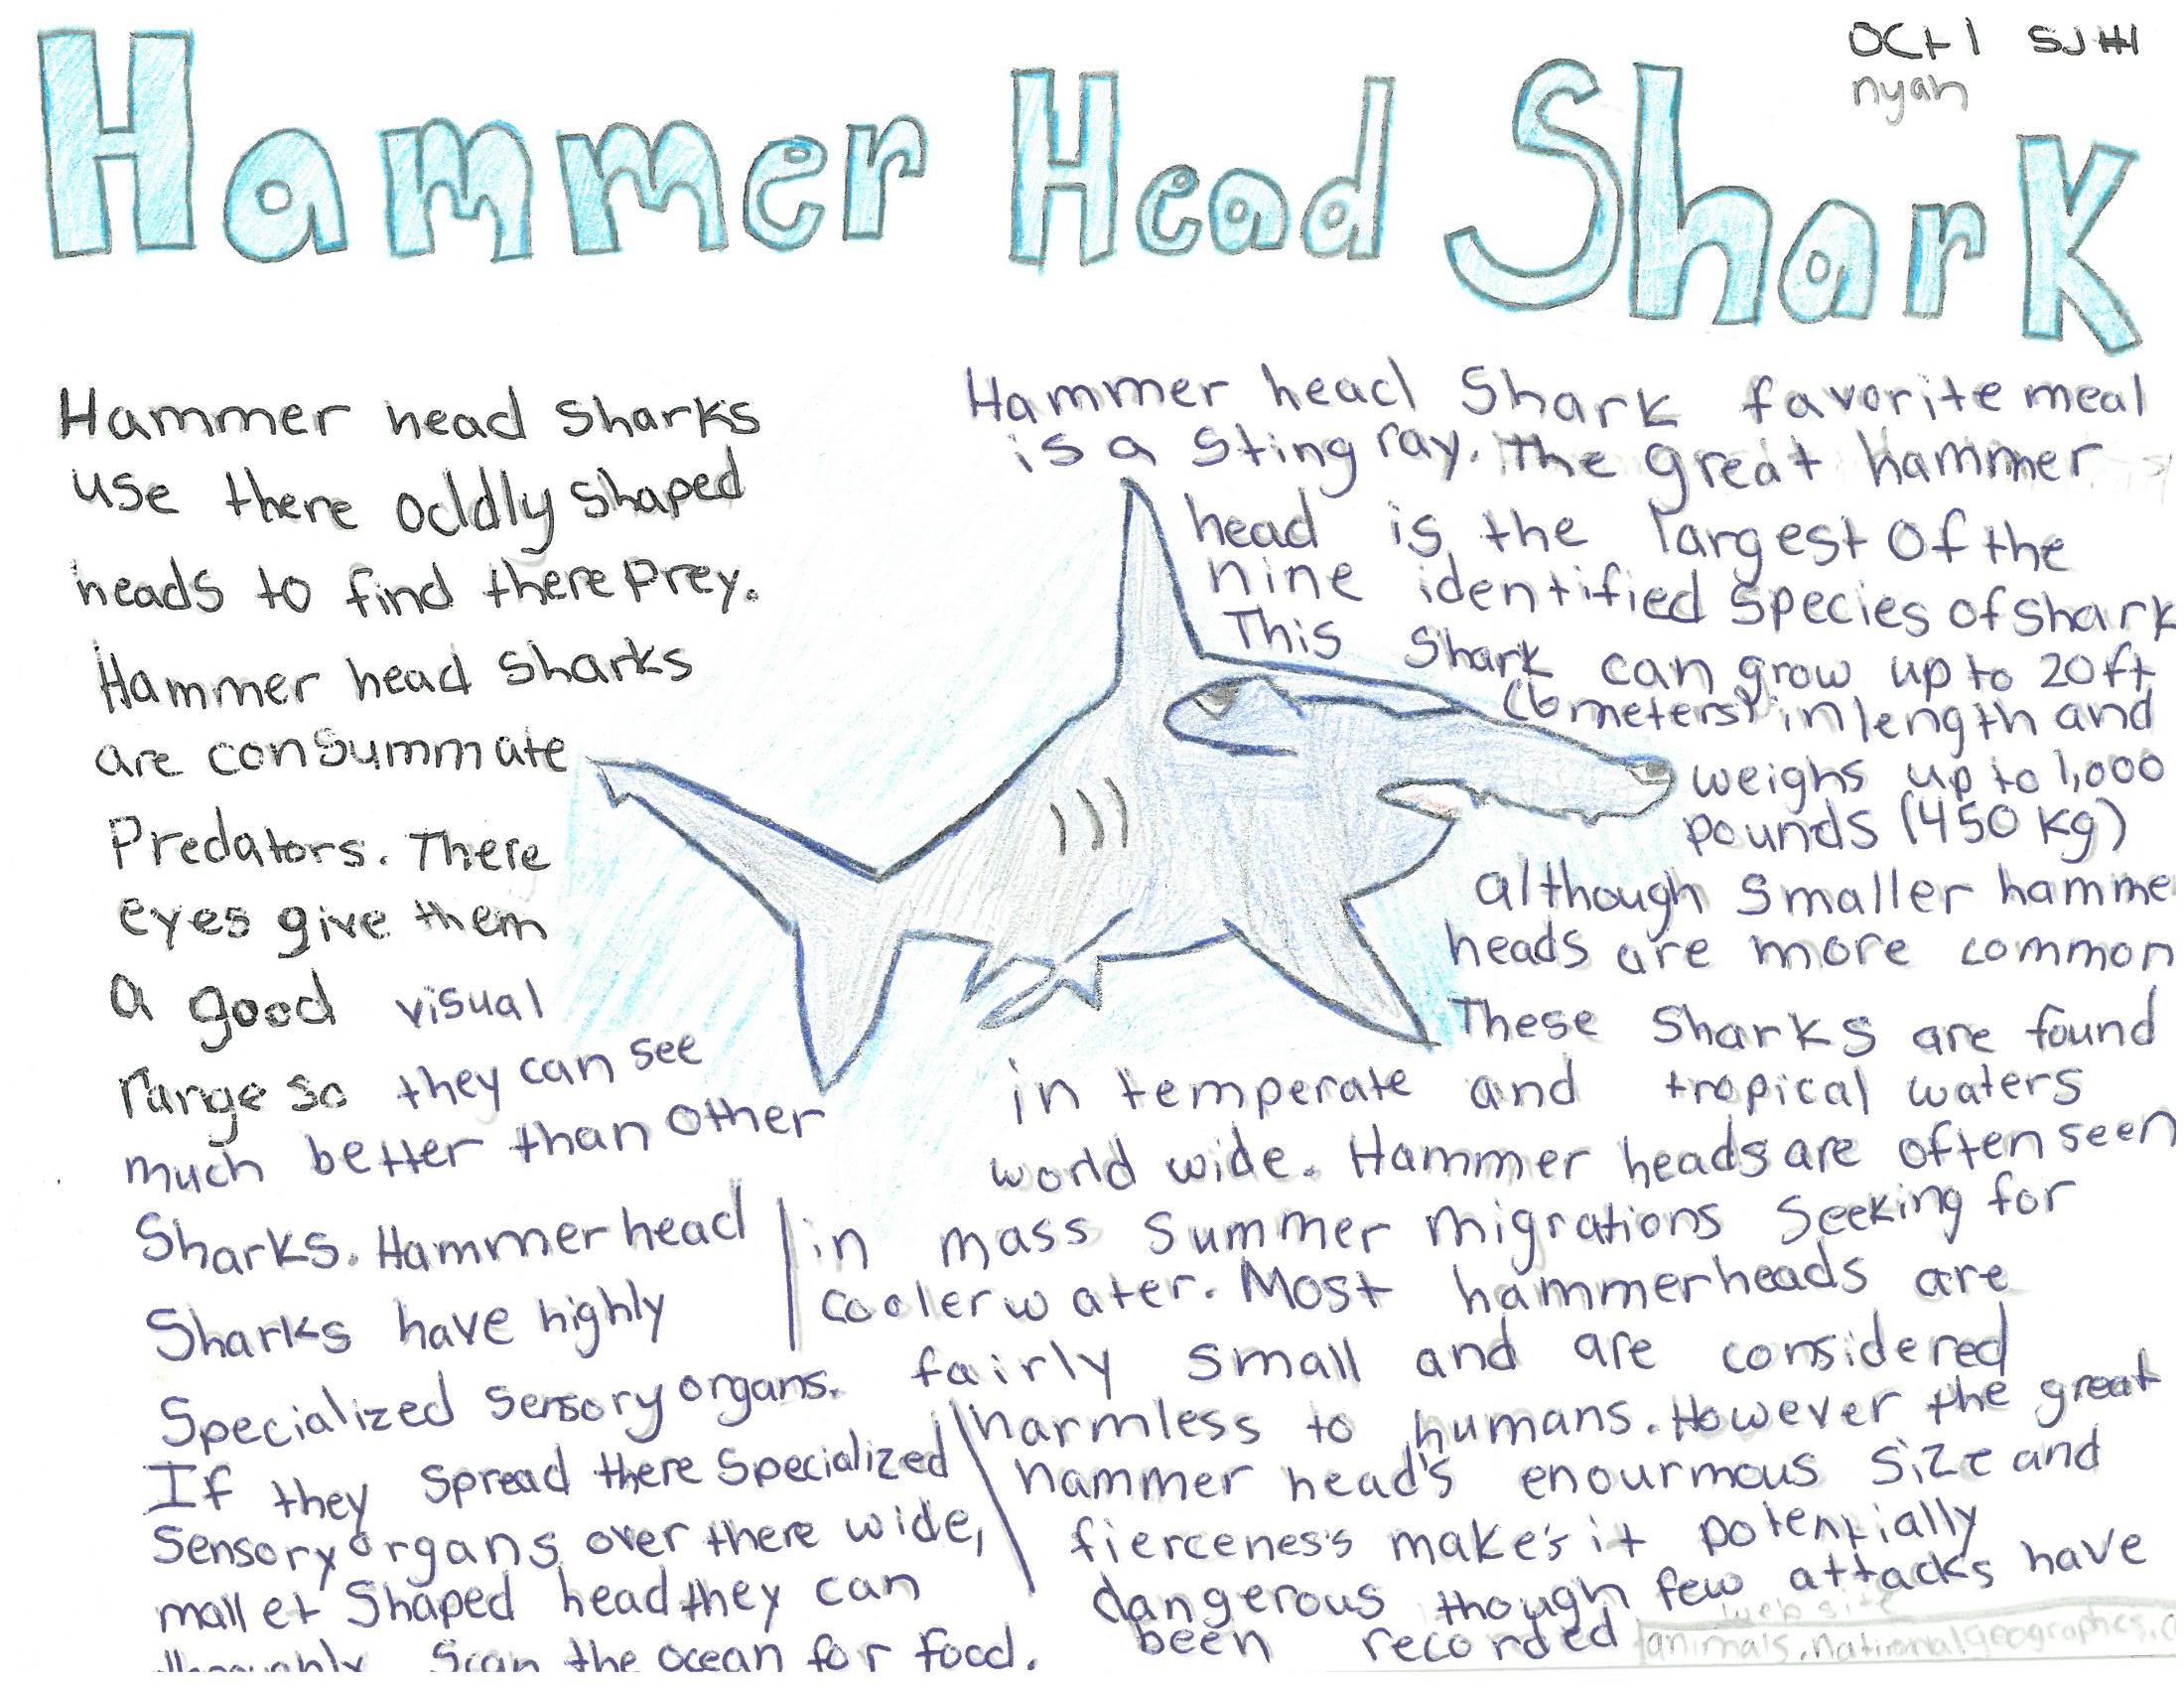 Hammer Head Shark
Oct 1 SJ #1
nyah
Hammer head sharks
use there oddly shaped
heads to find there prey.
Hammer head sharks
are consummate
Predators. There
eyes give them
a good visual
range so they can see
much better than other
Sharks. Hammer head
Sharks have highly
Specialized sensory organs.
If they spread there specialized
sensory organs over there wide,
mallet shaped head they can
thoroughly scan the ocean for food.
Hammer head Shark favorite meal
is a sting ray. The great hammer
head is the largest of the
nine identified species of shark
This Shark can grow up to 20ft
(6 meters) in length and
weighs up to 1,000
pounds (450 kg)
although smaller hamme
heads are more common
These Sharks are found
in temperate and tropical waters
world wide. Hammer heads are often seen
in mass summer migrations seeking for
cooler water. Most hammerheads are
fairly small and are considered
harmless to humans. However the great
hammer head's enourmous size and
fierceness makes it potentially
dangerous though few attacks have
been recorded
website
animals.nationalgeographics.c